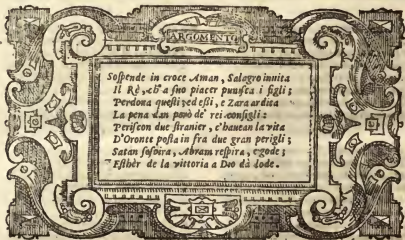 ARGOMENTO
Sospende in croce Aman, Salagro inuita
Il Rè, ch'a suo piacer punisca i figli;
Perdona questi; ed essi, e Zara ardita
La pena dan però de' rei consigli:
Periscon due stranier, c'hauean la vita
D'Oronte posta in fra due gran perigli;
Satan sospira, Abram respira, e gode;
Esthèr de la vittoria a Dio dà lode.